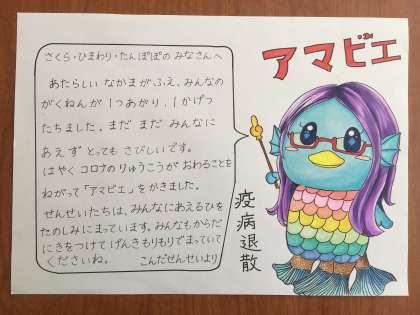 アマビエ
さくら・ひまわり・たんぽぽの みなさんへ
あたらしい なかまがふえ、みんなの
がくねんが 1つあがり、1かげつ
たちました。まだ まだ みんなに
あえず とっても さびしいです。
はやく コロナの りゅうこうが おわることを
ねがって「アマビエ」をかきました。
せんせいたちは、みんなにあえるひを
たのしみに まっています。みんなもからだ
にきをつけて げんきもりもりで まっていて
くださいね。 こんだせんせいより
疫病退散